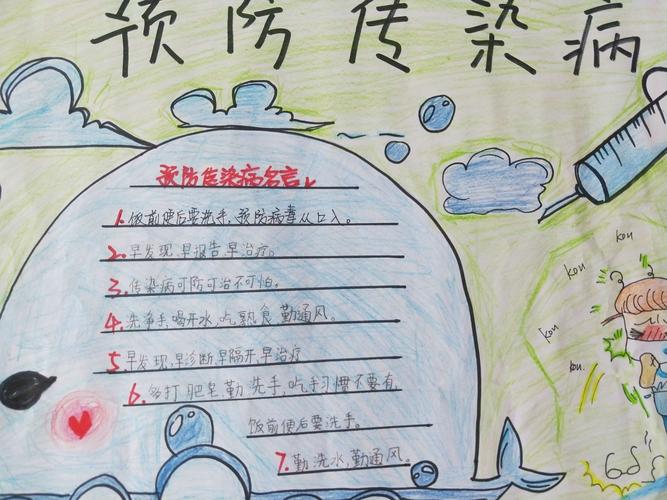 预防传染病
预防传染病名言
1. 饭前便后要洗手,预防病毒从口入。
2. 早发现,早报告,早治疗。
3. 传染病可防可治不可怕。
4. 洗净手,喝开水,吃熟食,勤通风。
5. 早发现,早诊断,早隔开,早治疗
6. 多打肥皂勤洗手,吃手习惯不要有,
饭前便后要洗手。
7. 勤洗水,勤通风。
kou
kou
kou
kou.